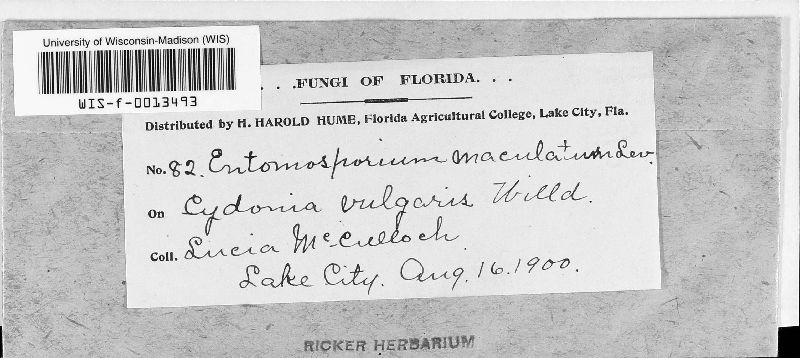 University of Wisconsin-Madison (WIS)
WIS-f-0013493
. . .FUNGI OF FLORIDA. . .
Distributed by H. HAROLD HUME, Florida Agricultural College, Lake City, Fla.
No. 82. Entomosporium maculatum Lev.
On Cydonia vulgaris Willd.
Coll. Lucia McCulloch
Lake City. Aug. 16. 1900.
RICKER HERBARIUM